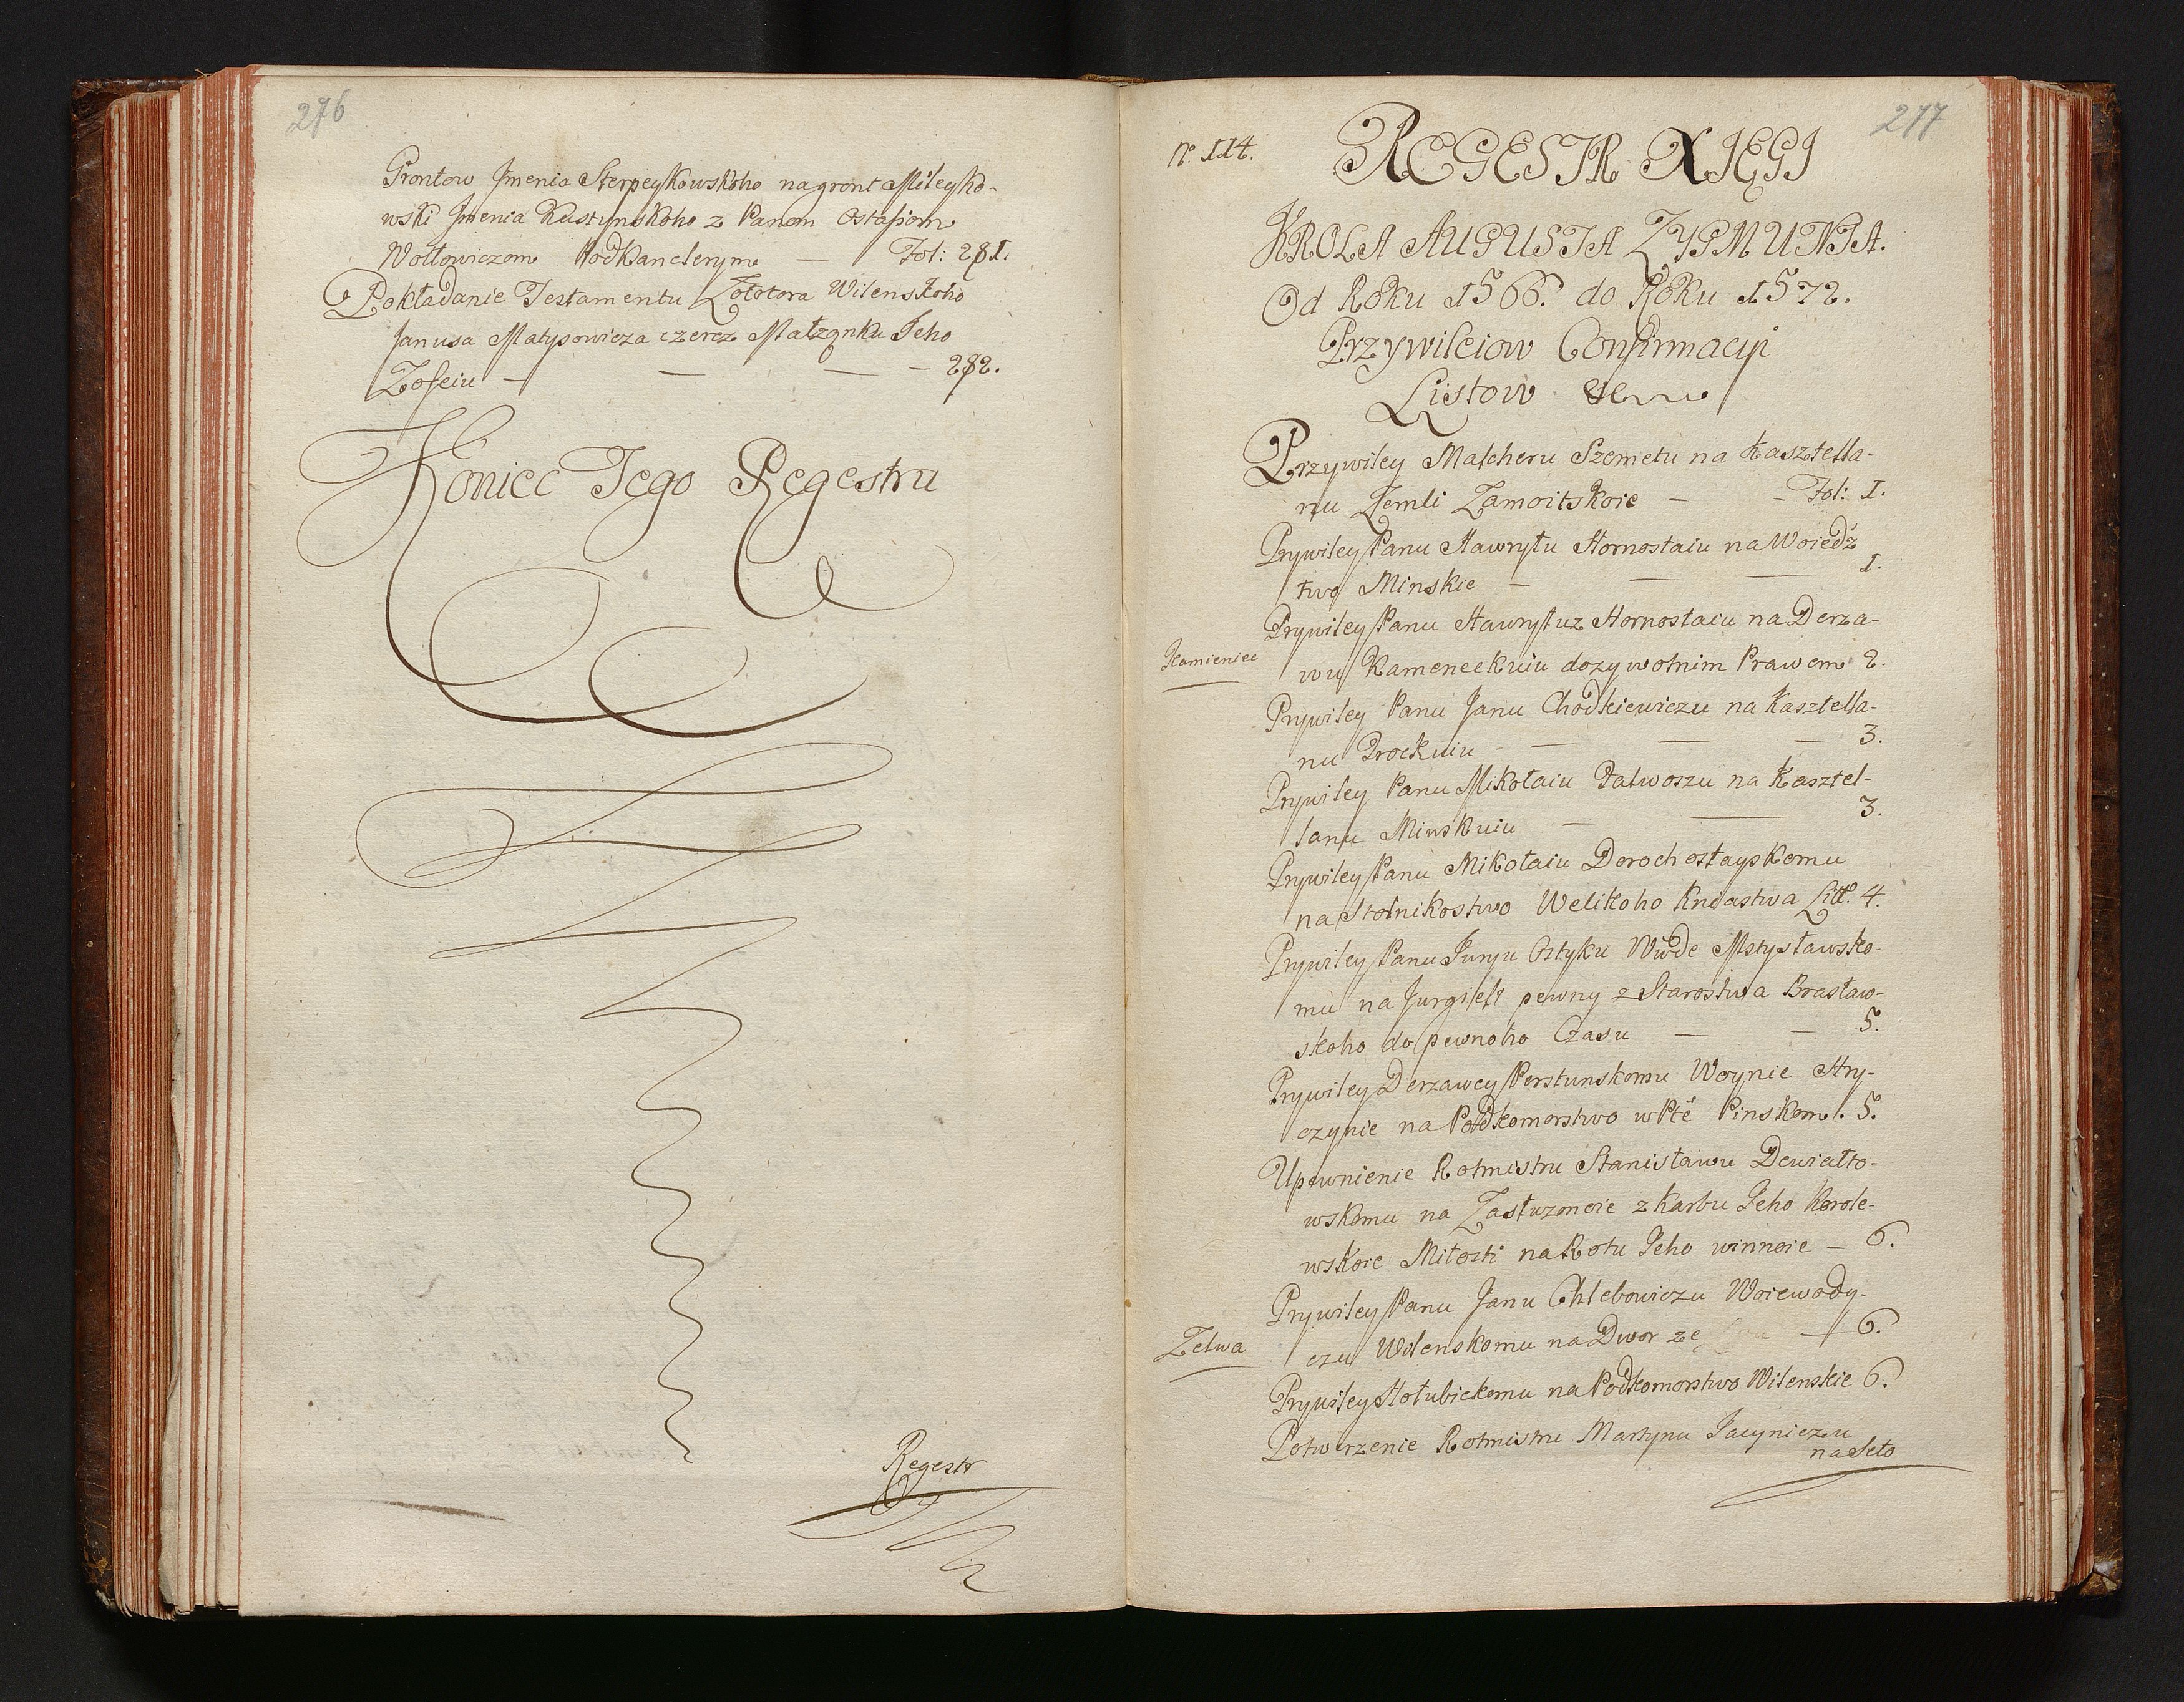 276
Grontow Jmenia Sterpeykowskoho na gront Mileyko-
wski Jmenia Kustynskoho z Panom Ostafiom
Wołłowiczom Podkanclerym — Fol: 281.
Pokładanie Testamentu Zołotora Wilenskoho
Janusa Matysowicza czerez Małząnku Jeho
Zofeiu — — — — 282.
Koniec Tego Regestru
Regestr
277
N. 114.
REGESTR XIĘGI
KROLA AUGUSTA ZYGMUNTA.
Od Roku 1566. do Roku 1572.
Przywileiow Confirmacyi
Listow
Przywiley Malcheru Szemetu na Kasztella-
nu Zemli Zamoitskoie — — Fol: 1.
Prywiley Panu Hawryłu Hornostaiu na Woiedz
two Minskie — — — 1.
Prywiley Panu Hawryłuz Hornostaiu na Derza-
Kamieniec
wu Kameneckuiu dozywotnim Prawem 2.
Prywiley Panu Janu Chodkiewiczu na Kasztella-
nu Trockuiu — — — 3.
Prywiley Panu Mikołaiu Talwoszu na Kasztel-
lanu Minskuiu — — 3.
Prywiley Panu Mikołaiu Dorochostayskomu
na Stolnikostwo Welikoho Kniastwa Litt. 4.
Prywiley Panu Juryu Ostyku Wwde Mstysławsko-
mu na Jurgielt pewny z Starostwa Brasław-
skoho do pewnoho Czasu — — 5.
Prywiley Derzawcy Perstunskomu Woynie Hry-
czynie na Podkomorstwo w Pte Pinskom. 5.
Upewnienie Rotmistru Stanisławu Dewiałto-
wskomu na Zasłuzonoie z karbu Jeho Korole-
wskoie Miłosti na Rotu Jeho winnoie — 6.
Prywiley Panu Janu Chlebowiczu Woiewody-
Zelwa
czu Wilenskomu na Dwor ze — 6.
Prywiley Hołubickomu na Podkomorstwo Wilenskie 6.
Potwerzenie Rotmistru Martynu Jacyniczu
na Seło